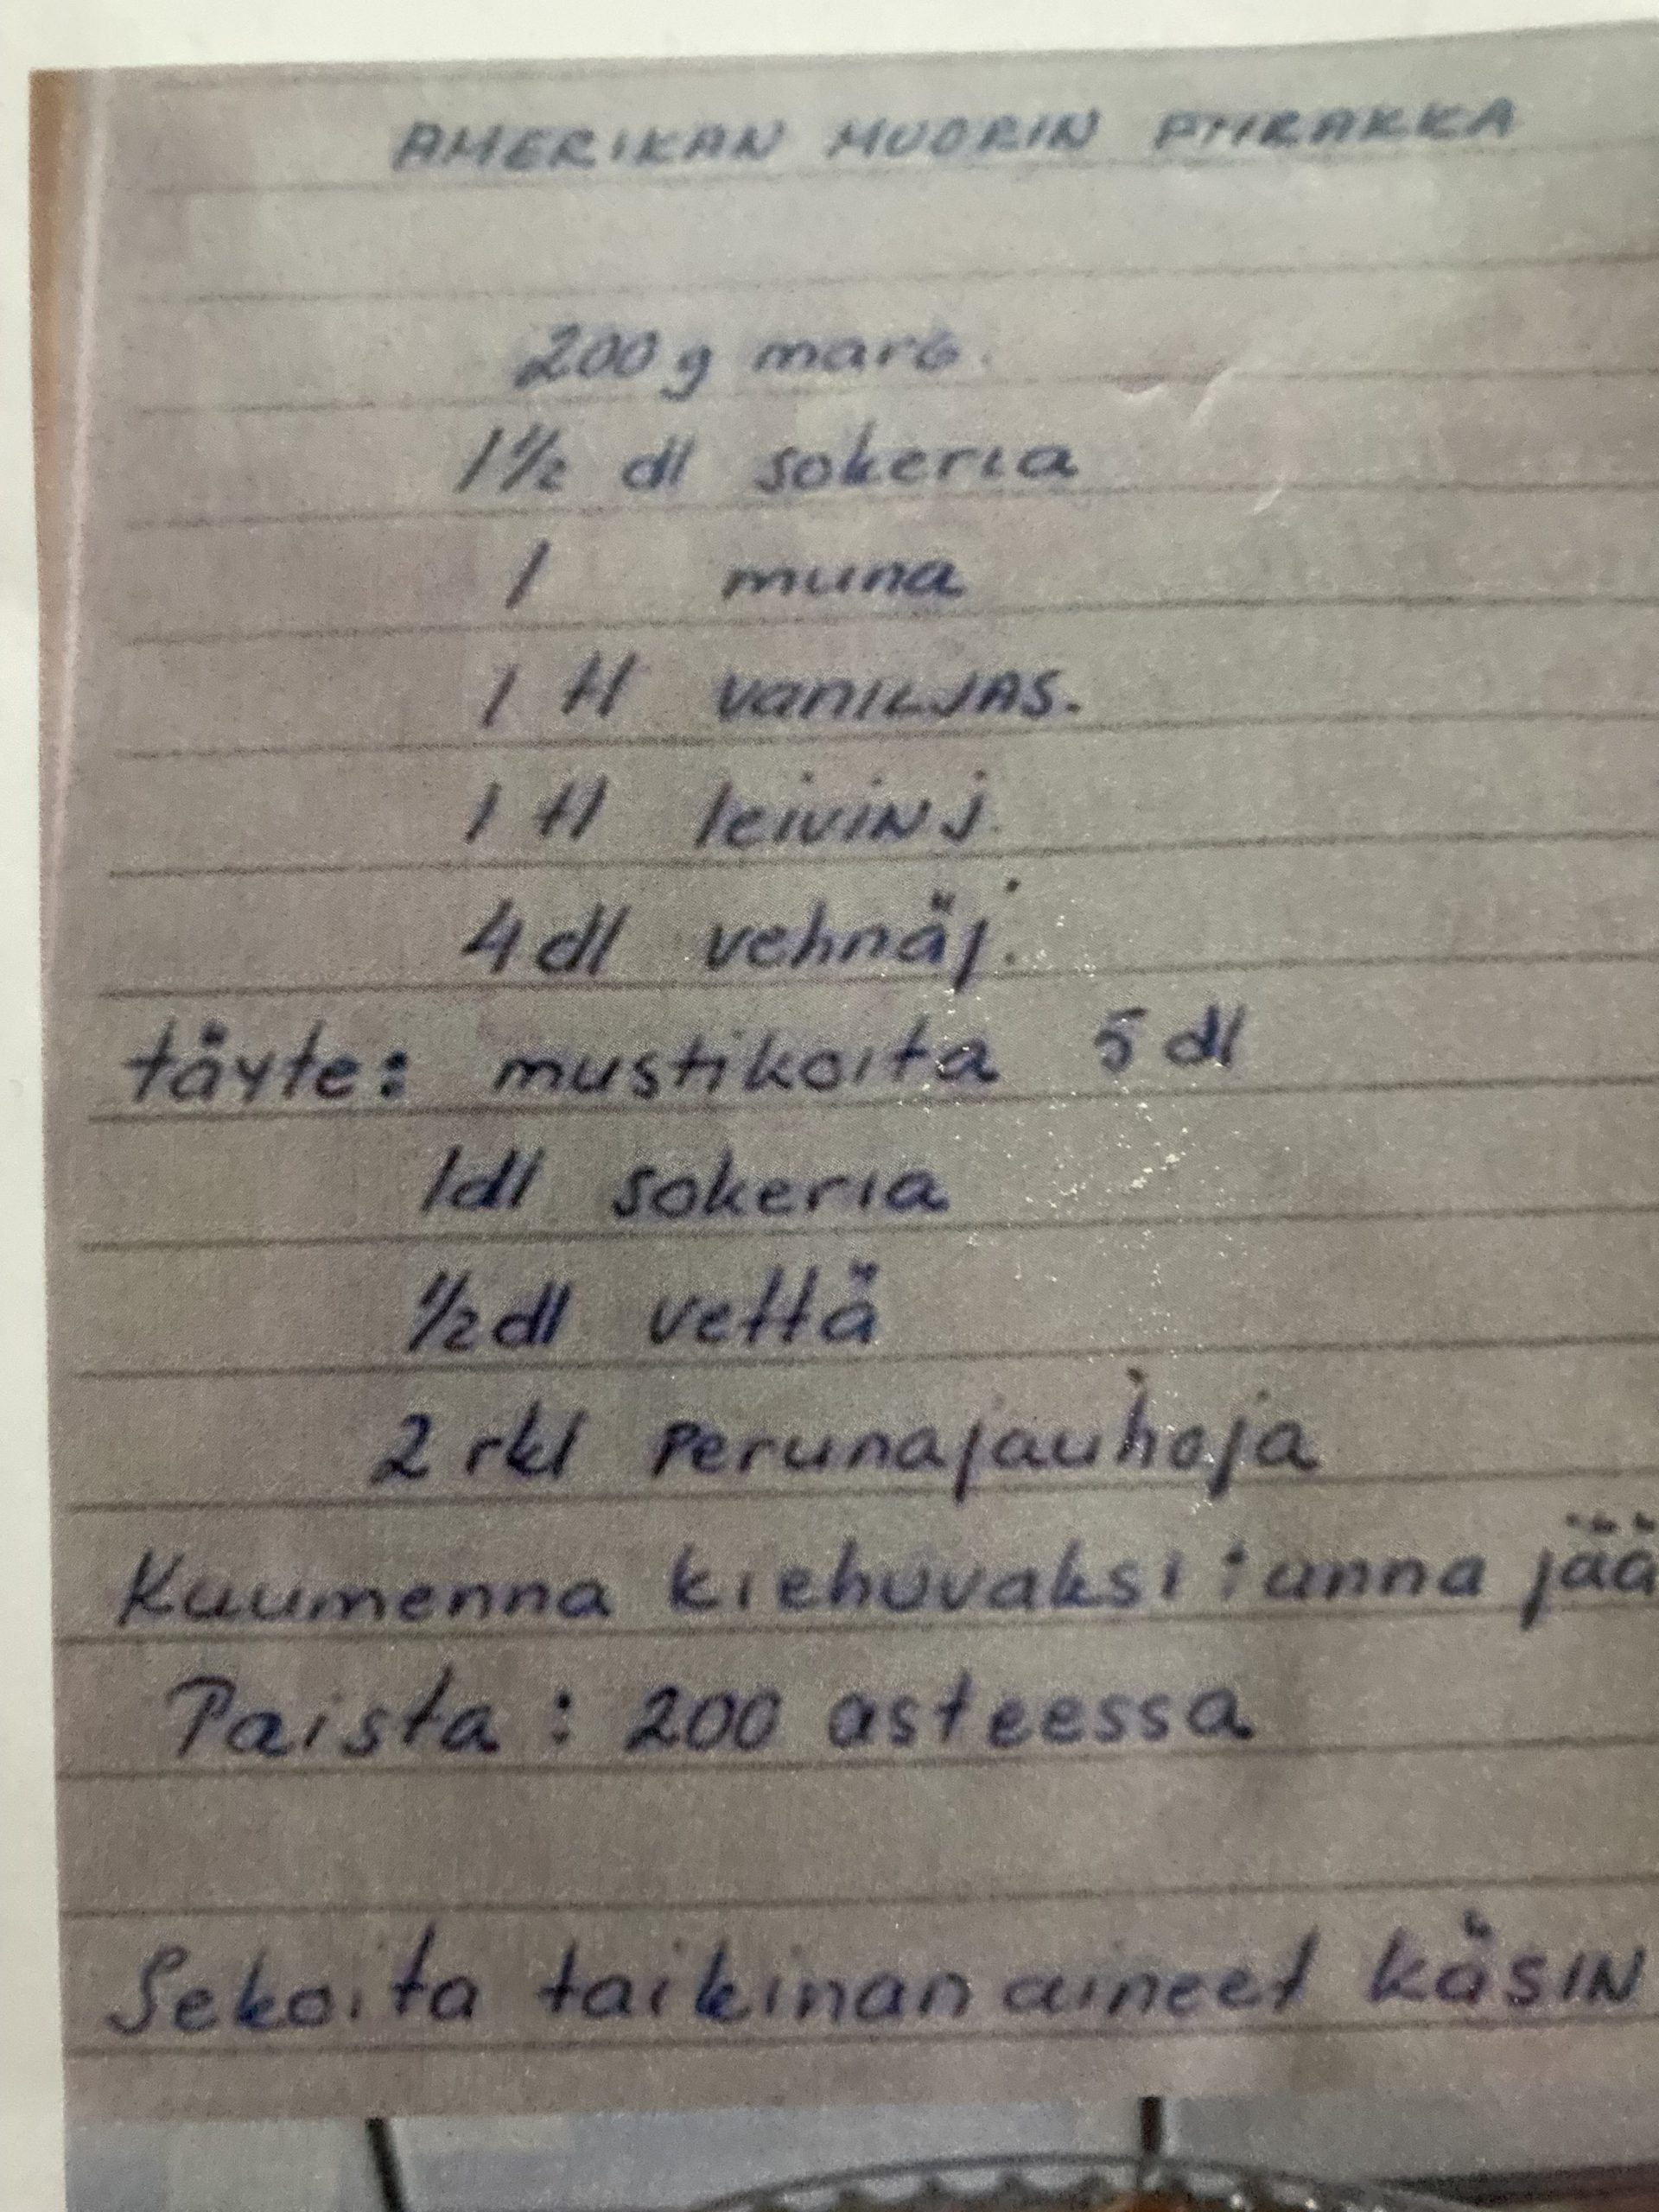 AMERIKAN MUORIN PIIRAKKA
200 g marg.
1 1/2 dl sokeria
1 muna
1 tl vaniljas.
1 tl leivinj.
4 dl vehnäj.
täyte: mustikoita 5 dl
1 dl sokeria
1/2 dl vettä
2 rkl perunajauhoja
Kuumenna kiehuvaksi : anna jää
Paista : 200 asteessa
Sekoita taikinan aineet käsin